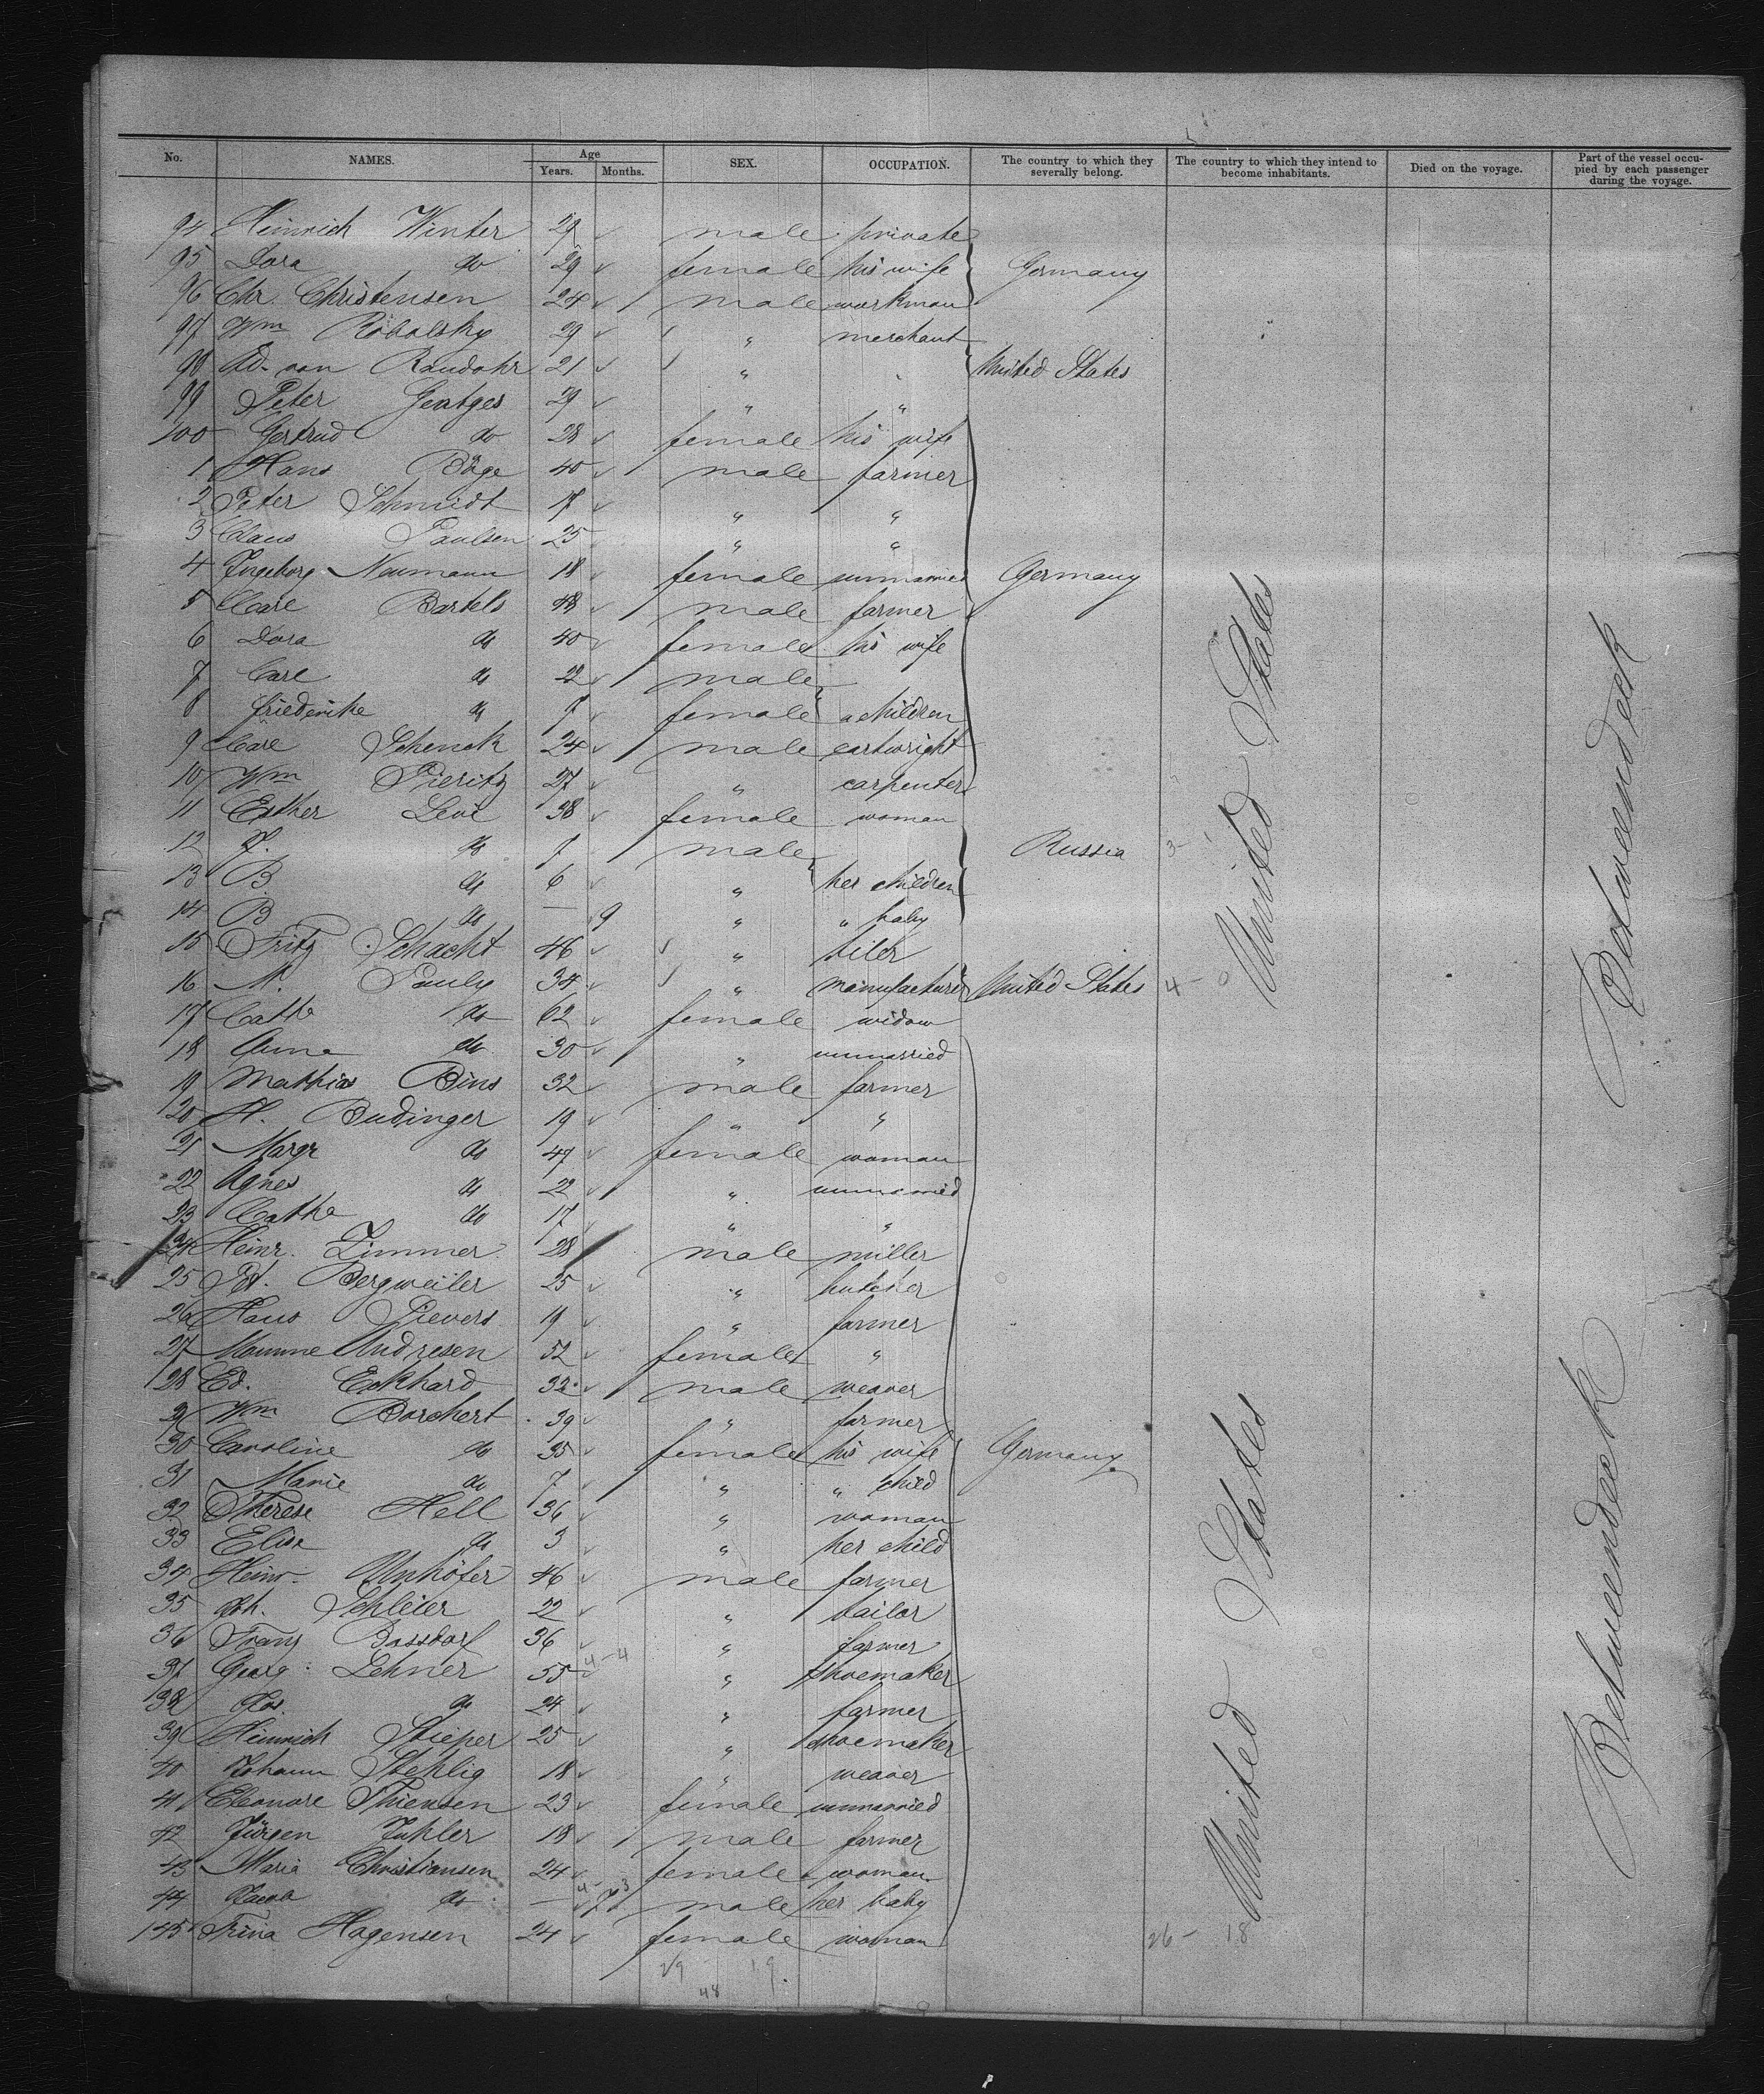 No. NAMES. Age Years. Months. SEX. OCCUPATION. The country to which they severally belong. The country to which they intend to become inhabitants. Died on the voyage. Part of the vessel occupied by each passenger during the voyage.
94 Heinrich Winter 29 male private
95 Dora do 29 female his wife Germany
96 Chr. Christensen 24 male workman
97 Wm Robolsky 29 " merchant
98 Ed. von Ramdohr 21 " " United States
99 Peter Gentges 29 " "
100 Gertrud do 28 female his wife
1 Hans Böge 40 male farmer
2 Peter Schmidt 17 " "
3 Claus Paulsen 25 " "
4 Ingeborg Neumann 18 female unmarried Germany
5 Carl Bartels 48 male farmer
6 Dora do 40 female his wife
7 Carl do 22 male
8 Friederike do 7 female " children
9 Carl Schenck 24 male cartwright
10 Wm Pieritz 27 " carpenter
11 Esther Levi 38 female woman
12 do 7 male Russia 3-
13 B. do 6 " her children
14 B do — 9 " " baby
15 Fritz Schacht 46 " tiler
16 N. Pauly 34 " manufacturer United States 4-0
17 Cathe do 62 female widow
18 Anna do 30 " unmarried
19 Mathias Bins 32 male farmer
20 H. Budinger 19 " "
21 Margr do 47 female woman
22 Agnes do 22 " unmarried
23 Cathe do 17 " "
24 Heinr. Zimmer 28 male miller
25 Pet. Bergweiler 25 " butcher
26 Hans Sievers 19 " farmer
27 Mumme Andresen 52 female "
28 Ed. Eckhard 32 male weaver
29 Wm Borchert 39 " farmer
30 Caroline do 35 female his wife Germany
31 Marie do 7 " " child
32 Therese Hell 36 " woman
33 Elise do 3 " her child
34 Heinr. Unhöfer 46 male farmer
35 Joh. Schleier 22 " tailor
36 Franz Bossdorf 36 " farmer
37 Georg Lehner 55 4-4 " shoemaker
38 Jos. do 24 " farmer
39 Heinrich Stieper 25 " shoemaker
40 Johann Stehlig 18 " weaver
41 Eleonore Thiensen 23 female unmarried
42 Jürgen Juhler 18 male farmer
43 Maria Christiansen 24 female woman
44 do — 7 male her baby
145 Trina Hagensen 24 female woman
United States
United States
Betweendeck
Betweendeck
26- 18
29 19
48